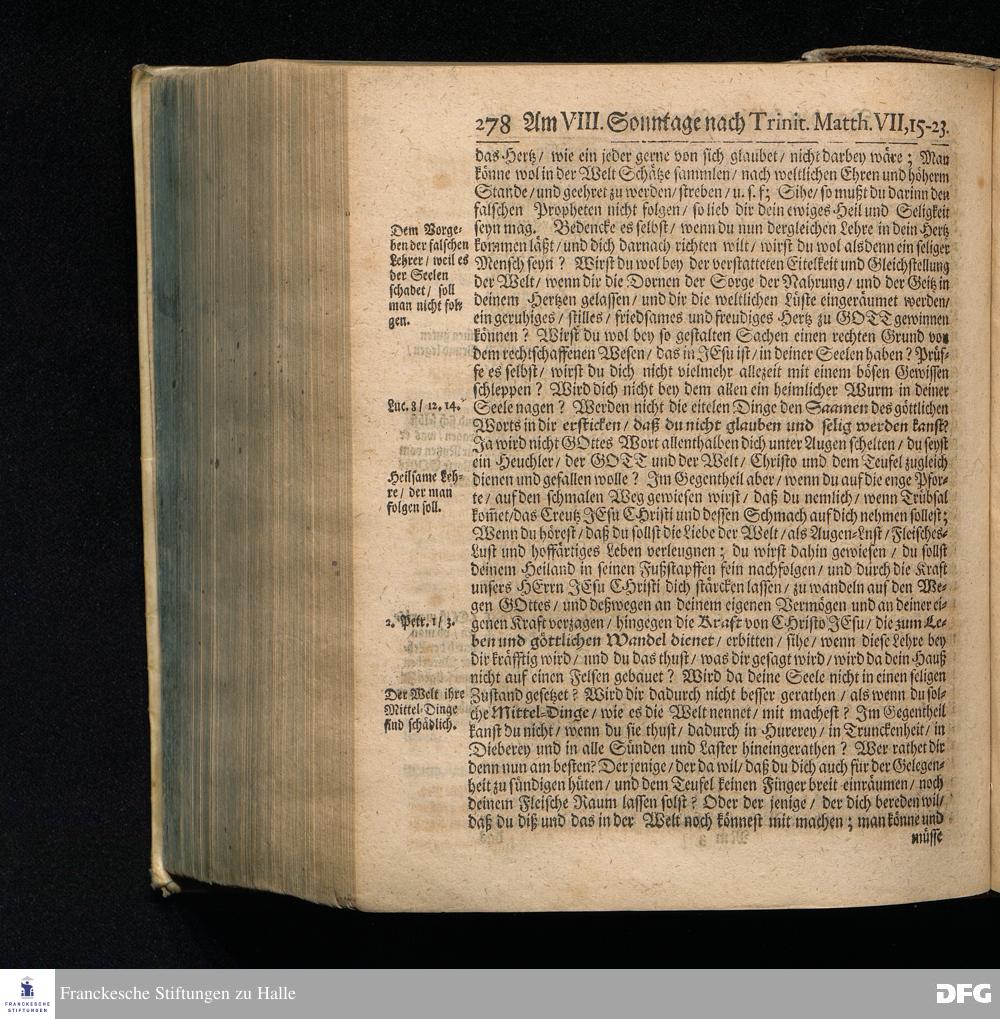 278 Am VIII. Sonntage nach Trinit. Matth. VII, 15-23.
das Hertz / wie ein jeder gerne von sich glaubet / nicht darbey wäre ; Man
könne wol in der Welt Schätze sammlen / nach weltlichen Ehren und höherm
Stande / und geehret zu werden / streben / u. s. f; Sihe / so mußt du darinn den
falschen Propheten nicht folgen / so lieb dir dein ewiges Heil und Seligkeit
seyn mag. Bedencke es selbst / wenn du nun dergleichen Lehre in dein Hertz
kommen läßt / und dich darnach richten wilt / wirst du wol alsdenn ein seliger
Mensch seyn ? Wirst du wol bey der verstatteten Eitelkeit und Gleichstellung
der Welt / wenn dir die Dornen der Sorge der Nahrung / und der Geitz in
deinem Hertzen gelassen / und dir die weltlichen Lüste eingeräumet werden /
ein geruhiges / stilles / friedsames und freudiges Hertz zu GOTT gewinnen
können ? Wirst du wol bey so gestalten Sachen einen rechten Grund von
dem rechtschaffenen Wesen / das in JEsu ist / in deiner Seelen haben ? Prüf-
fe es selbst / wirst du dich nicht vielmehr allezeit mit einem bösen Gewissen
schleppen ? Wird dich nicht bey dem allen ein heimlicher Wurm in deiner
Seele nagen ? Werden nicht die eitelen Dinge den Saamen des göttlichen
Worts in dir ersticken / daß du nicht glauben und selig werden kanst?
Ja wird nicht GOttes Wort allenthalben dich unter Augen schelten / du seyst
ein Heuchler / der GOTT und der Welt / Christo und dem Teufel zugleich
dienen und gefallen wolle ? Im Gegentheil aber / wenn du auf die enge Pfor-
te / auf den schmalen Weg gewiesen wirst / daß du nemlich / wenn Trübsal
kom̃et / das Creutz JEsu CHristi und dessen Schmach auf dich nehmen sollest ;
Wenn du hörest / daß du sollst die Liebe der Welt / als Augen-Lust / Fleisches-
Lust und hoffärtiges Leben verleugnen ; du wirst dahin gewiesen / du sollst
deinem Heiland in seinen Fußstapffen fein nachfolgen / und durch die Kraft
unsers HErrn JEsu CHristi dich stärcken lassen / zu wandeln auf den We-
gen GOttes / und deßwegen an deinem eigenen Vermögen und an deiner ei-
genen Kraft verzagen / hingegen die Kraft von CHristo JEsu / die zum Le-
ben und göttlichen Wandel dienet / erbitten / sihe / wenn diese Lehre bey
dir kräfftig wird / und du das thust / was dir gesagt wird / wird da dein Hauß
nicht auf einen Felsen gebauet ? Wird da deine Seele nicht in einen seligen
Zustand gesetzet ? Wird dir dadurch nicht besser gerathen / als wenn du sol-
che Mittel-Dinge / wie es die Welt nennet / mit machest ? Im Gegentheil
kanst du nicht / wenn du sie thust / dadurch in Hurerey / in Trunckenheit / in
Dieberey und in alle Sünden und Laster hineingerathen ? Wer rathet dir
denn nun am besten? Der jenige / der da wil / daß du dich auch für der Gelegen-
heit zu sündigen hüten / und dem Teufel keinen Finger breit einräumen / noch
deinem Fleische Raum lassen solst ? Oder der jenige / der dich bereden wil /
daß du diß und das in der Welt noch könnest mit machen ; man könne und
müsse
Dem Vorge-
ben der falschen
Lehrer / weil es
der Seelen
schadet / soll
man nicht fol-
gen.
Luc. 8 / 12. 14.
Heilsame Leh-
re / der man
folgen soll.
2. Petr. 1 / 3.
Der Welt ihre
Mittel-Dinge
sind schädlich.
FRANCKESCHE
STIFTUNGEN
Franckesche Stiftungen zu Halle
DFG